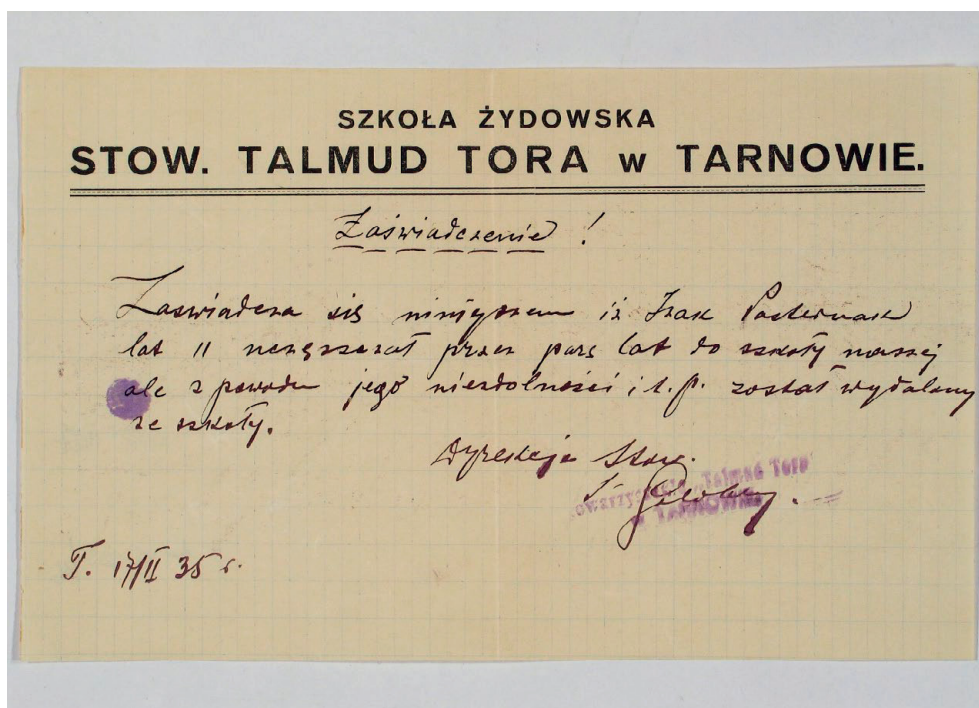 SZKOŁA ŻYDOWSKA
STOW. TALMUD TORA w TARNOWIE.
Zaświadczenie !
Zaświadcza się niniejszem iż Izak Pasternak
lat 11 uczęszczał przez parę lat do szkoły naszej
ale z powodu jego niezdolności i t. p. został wydalony
ze szkoły.
Dyrekcja Stow.
owarzyszenie Talmud Tora
w TARNOWIE
T. 17/II 35 r.